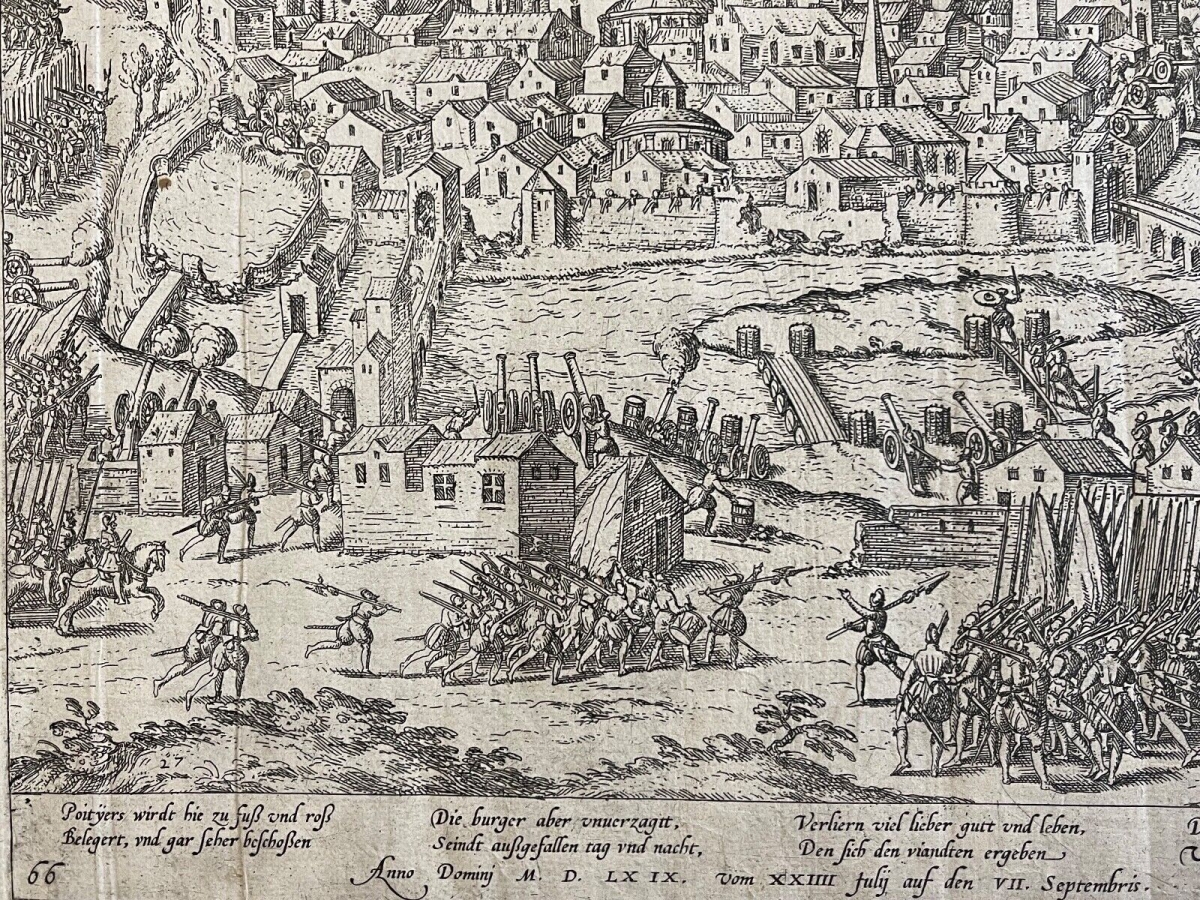 27
Poitÿers wirdt hie zu fuß vnd roß
Belegert, vnd gar seher beschoßen
Die burger aber vnuerzagtt,
Seindt außgefallen tag vnd nacht,
Verliern viel lieber gutt vnd leben,
Den sich den viandten ergeben
66
Anno Dominj M. D. LXIX. Vom XXIIII Julij auf den VII. Septembris.